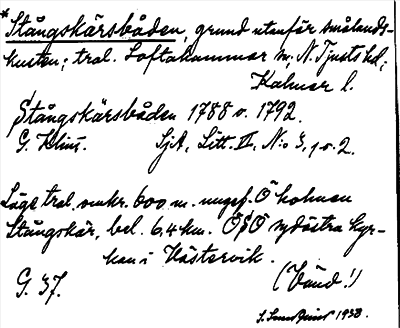 *Stångskärsbåden, grund utanför smålands-
kusten; tral. Loftahammar sn, N. Tjusts hd,
Kalmar l.
Stångskärsbåden 1788 o. 1792.
G. Klint. SjA, Litt. II, N:o 3, 1 o. 2.
Läge tral. omkr. 600 m. ungef. Ö holmen
Stångskär, bel. 6,4 km. ÖSÖ sydöstra kyr-
kan i Västervik.
G. 37. (Vänd!)
1938.